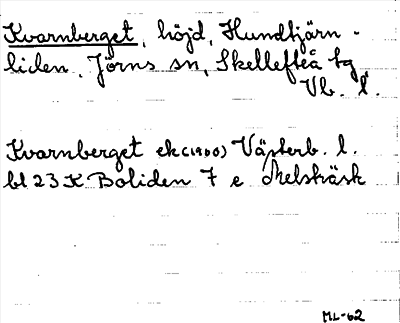 Kvarnberget, höjd, Hundtjärn-
liden, Jörns sn, Skellefteå tg
Vb. l.
Kvarnberget ek(1900) Västerb. l.
bl 23 K Boliden 7 e Melsträsk
ML-62